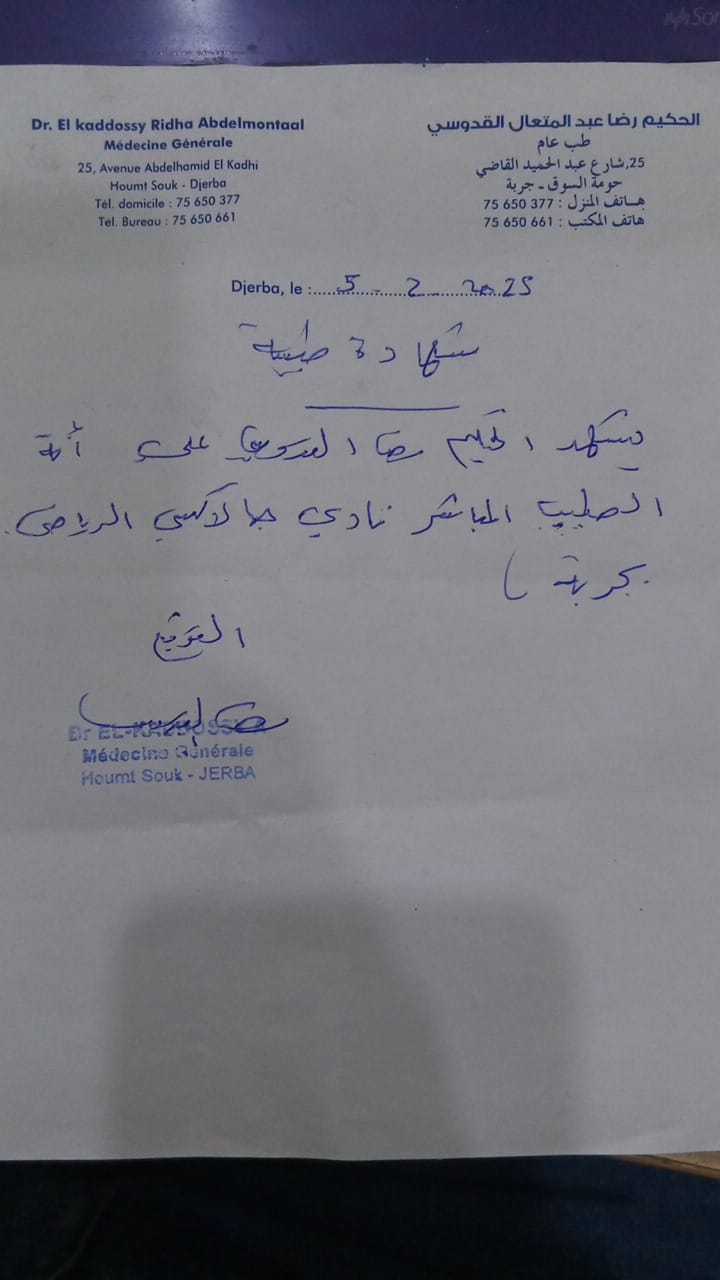 Dr. El kaddossy Ridha Abdelmontaal
Médecine Générale
25, Avenue Abdelhamid El Kadhi
Houmt Souk - Djerba
Tél. domicile : 75 650 377
Tél. Bureau : 75 650 661
الحكيم رضا عبد المتعال القدوسي
طب عام
25,شارع عبد الحميد القاضي
حومة السوق - جربة
هاتف المنزل : 377 650 75
هاتف المكتب : 661 650 75
Djerba, le : 5 - 2 - 2025
شهادة طبية
يشهد الحكيم رضا القدوسي على أنه
الطبيب المباشر نادي جالاكسي الرياضي
بجربة
التوقيع
Dr EL-KADDOSSY
Médecine Générale
Houmt Souk - JERBA